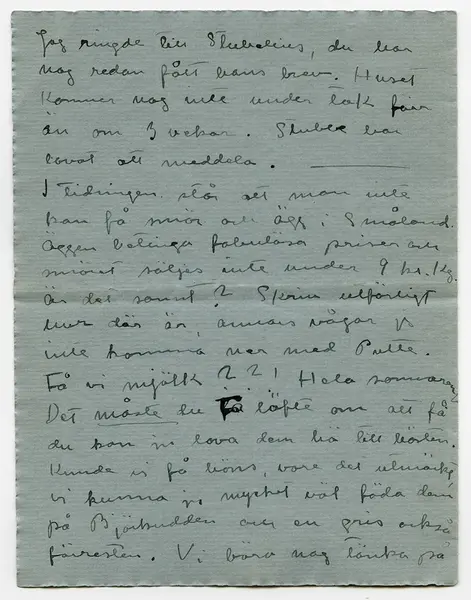 Jag ringde till Stubelius, du har
nog redan fått hans brev. Huset
kommer nog inte under tak förr
än om 3 veckor. Stubbe har
lovat att meddela.
I tidningen står att man inte
kan få smör och ägg i Småland.
Äggen betinga fabulösa priser och
smöret säljes inte under 9 kr./kg.
är det sannt? Skriv utförligt
hur där är, annars vågar jg
inte komma ner med Pelle.
Få vi mjölk ??! Hela sommaren?
Det måste du få löfte om att få
du kan ju lova dem hö till hösten.
Kunde vi få höns, vore det utmärkt,
vi kunna ju mycket väl föda dem
på Björkudden och en gris också
förresten. Vi böra nog tänka på